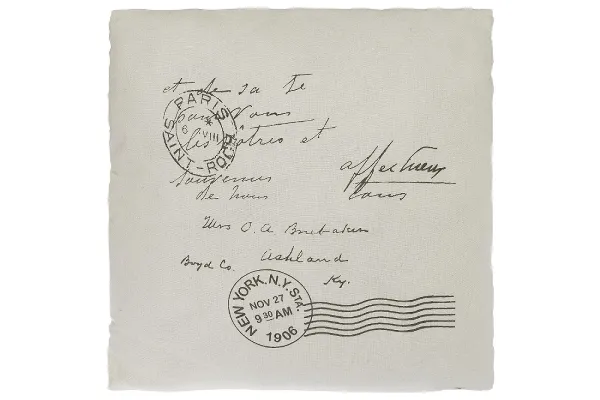 et de sa Te
PARIS
SAINT-ROCH
6 VIII
pour Vous
les vôtres et
affectueux
souvenirs
de nous tous
Mrs O. A. Brubaker
Ashland
Boyd Co.
Ky.
NEW YORK, N.Y. STA.
NOV 27
9 30 AM
1906